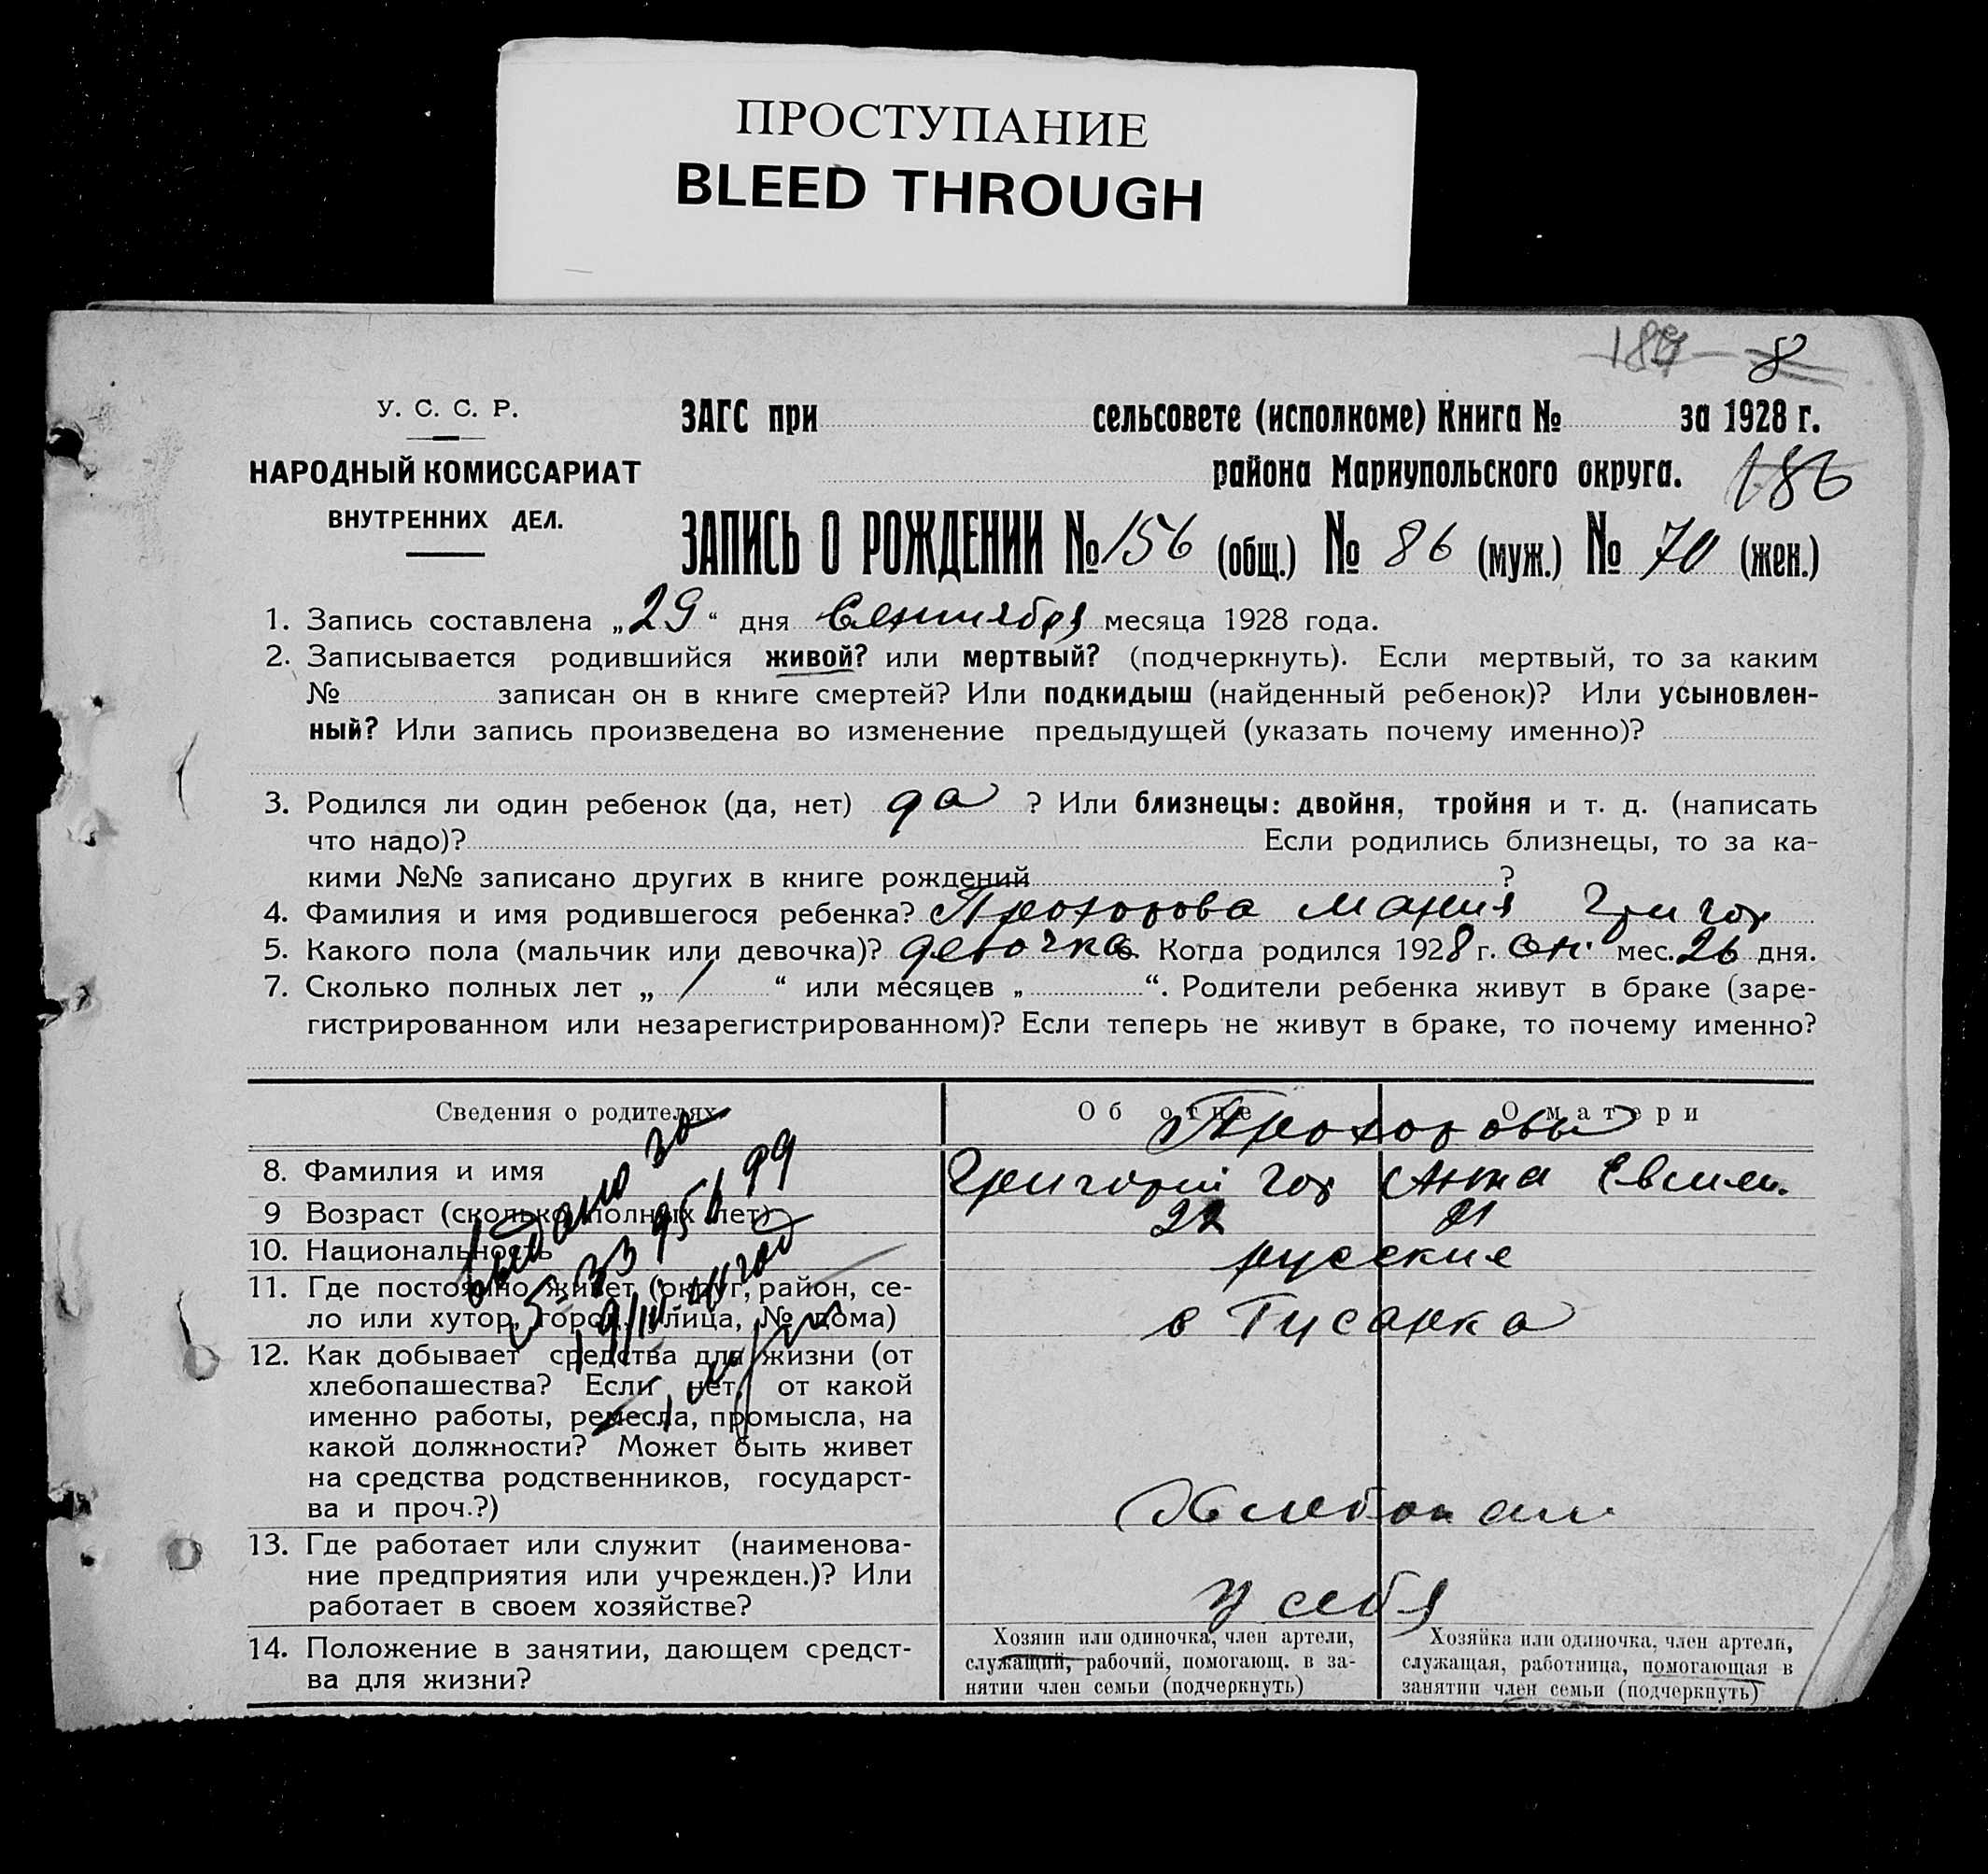 ПРОСТУПАНИЕ
BLEED THROUGH
8
У. С. С. Р.
НАРОДНЫЙ КОМИССАРИАТ
ВНУТРЕННИХ ДЕЛ.
ЗАГС при сельсовете (исполкоме) Книга № за 1928 г.
района Мариупольского округа. 186
ЗАПИСЬ О РОЖДЕНИИ № 156 (общ.) № 86 (муж.) № 70 (жен.)
1. Запись составлена „29“ дня Сентября месяца 1928 года.
2. Записывается родившийся живой? или мертвый? (подчеркнуть). Если мертвый, то за каким
№ записан он в книге смертей? Или подкидыш (найденный ребенок)? Или усыновлен-
ный? Или запись произведена во изменение предыдущей (указать почему именно)?
3. Родился ли один ребенок (да, нет) да ? Или близнецы: двойня, тройня и т. д. (написать
что надо)? Если родились близнецы, то за ка-
кими №№ записано других в книге рождений ?
4. Фамилия и имя родившегося ребенка? Прохорова Мария Григор
5. Какого пола (мальчик или девочка)? девочка 6. Когда родился 1928 г. сен. мес. 26 дня.
7. Сколько полных лет „ 1 “ или месяцев „ “. Родители ребенка живут в браке (заре-
гистрированном или незарегистрированном)? Если теперь не живут в браке, то почему именно?
Сведения о родителях Об отце О матери
Прохоровы
8. Фамилия и имя Григорий Гор Анна Евсим.
9 Возраст (сколько полных лет) 22 21
10. Национальность русские
11. Где постоянно живет (округ, район, се-
ло или хутор, город, улица, № дома) с Гусарка
12. Как добывает средства для жизни (от
хлебопашества? Если нет, от какой
именно работы, ремесла, промысла, на
какой должности? Может быть живет
на средства родственников, государст-
ва и проч.?) Хлебопаш
13. Где работает или служит (наименова-
ние предприятия или учрежден.)? Или
работает в своем хозяйстве? у себя
14. Положение в занятии, дающем средст-
ва для жизни?
Хозяин или одиночка, член артели,
служащий, рабочий, помогающ. в за-
нятии член семьи (подчеркнуть)
Хозяйка или одиночка, член артели,
служащая, работница, помогающая в
занятии член семьи (подчеркнуть)
выдано за